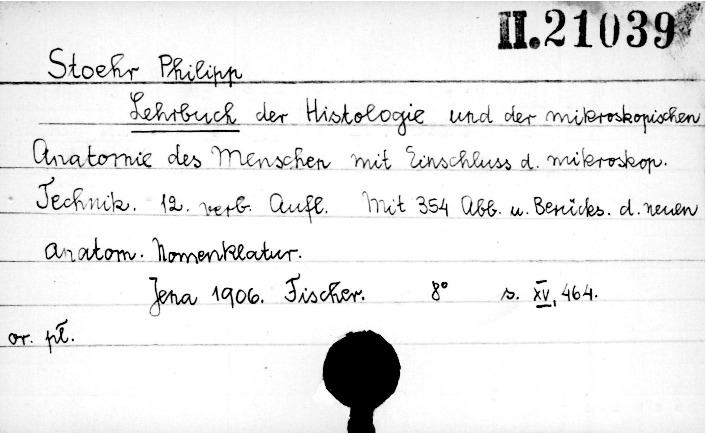 II.21039
Stoehr Philipp
Lehrbuch der Histologie und der mikroskopischen
Anatomie des Menschen mit Einschluss d. mikroskop.
Technik. 12. verb. Aufl. Mit 354 Abb. u. Berücks. d. neuen
anatom. Nomenklatur.
Jena 1906. Fischer. 8° s. XV, 464.
or. pł.